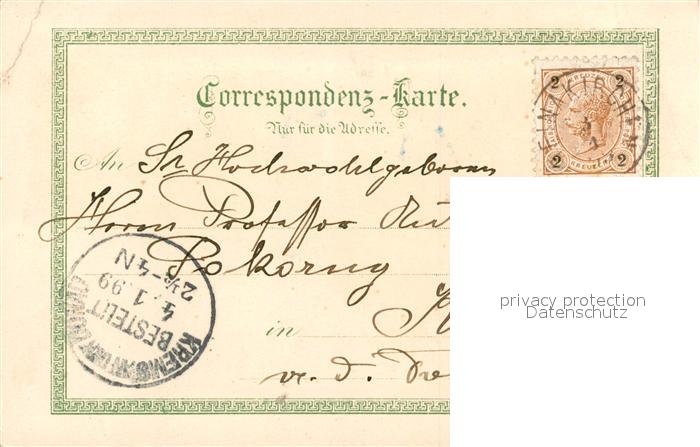 Correspondenz-Karte.
Nur für die Adresse.
2 2
2 KREUZER 2
An Sr. Hochwohlgeboren
Herrn Professor
Pokorny
in
a. d.
KREMS
BESTELLT
4.1.99
2½-4N
privacy protection
Datenschutz